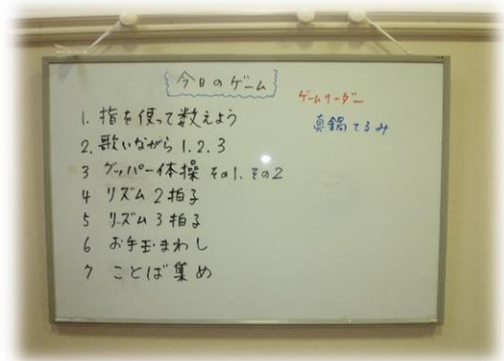 今日のゲーム
ゲームリーダー
真鍋てるみ
1. 指を使って数えよう
2. 歌いながら1.2.3
3 グッパー体操 その1.その2
4 リズム2拍子
5 リズム3拍子
6 お手玉まわし
7 ことば集め